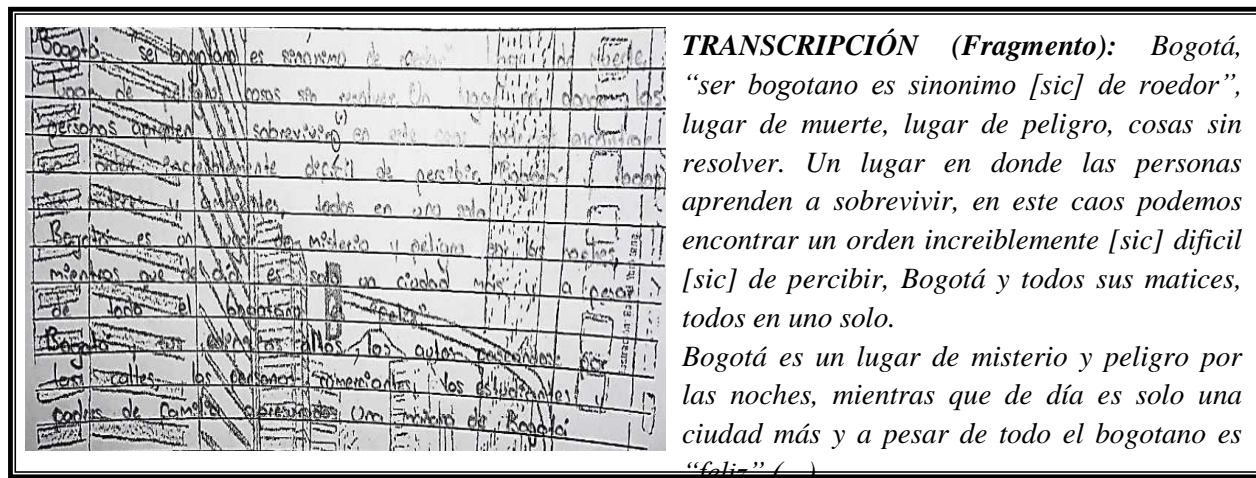 Bogotá, ser bogotano es sinonimo de roedor lugar de muerte,
lugar de peligro, cosas sin resolver. Un lugar en donde las
personas aprenden a sobrevivir, en este caos podemos encontrar
un orden increiblemente dificil de percibir, Bogotá y todos
todos en uno solo
Bogotá es un lugar de misterio y peligro por las noches,
mientras que de día es solo un ciudad más y a pesar
de todo el bogotano es "feliz"
Bogotá son edificios altos, los autos pasando por
las calles, las personas comerciantes, los estudiantes,
padres de familia apresurados Una de Bogotá
TRANSCRIPCIÓN (Fragmento): Bogotá,
“ser bogotano es sinonimo [sic] de roedor”,
lugar de muerte, lugar de peligro, cosas sin
resolver. Un lugar en donde las personas
aprenden a sobrevivir, en este caos podemos
encontrar un orden increiblemente [sic] dificil
[sic] de percibir, Bogotá y todos sus matices,
todos en uno solo.
Bogotá es un lugar de misterio y peligro por
las noches, mientras que de día es solo una
ciudad más y a pesar de todo el bogotano es
“feliz” (…)